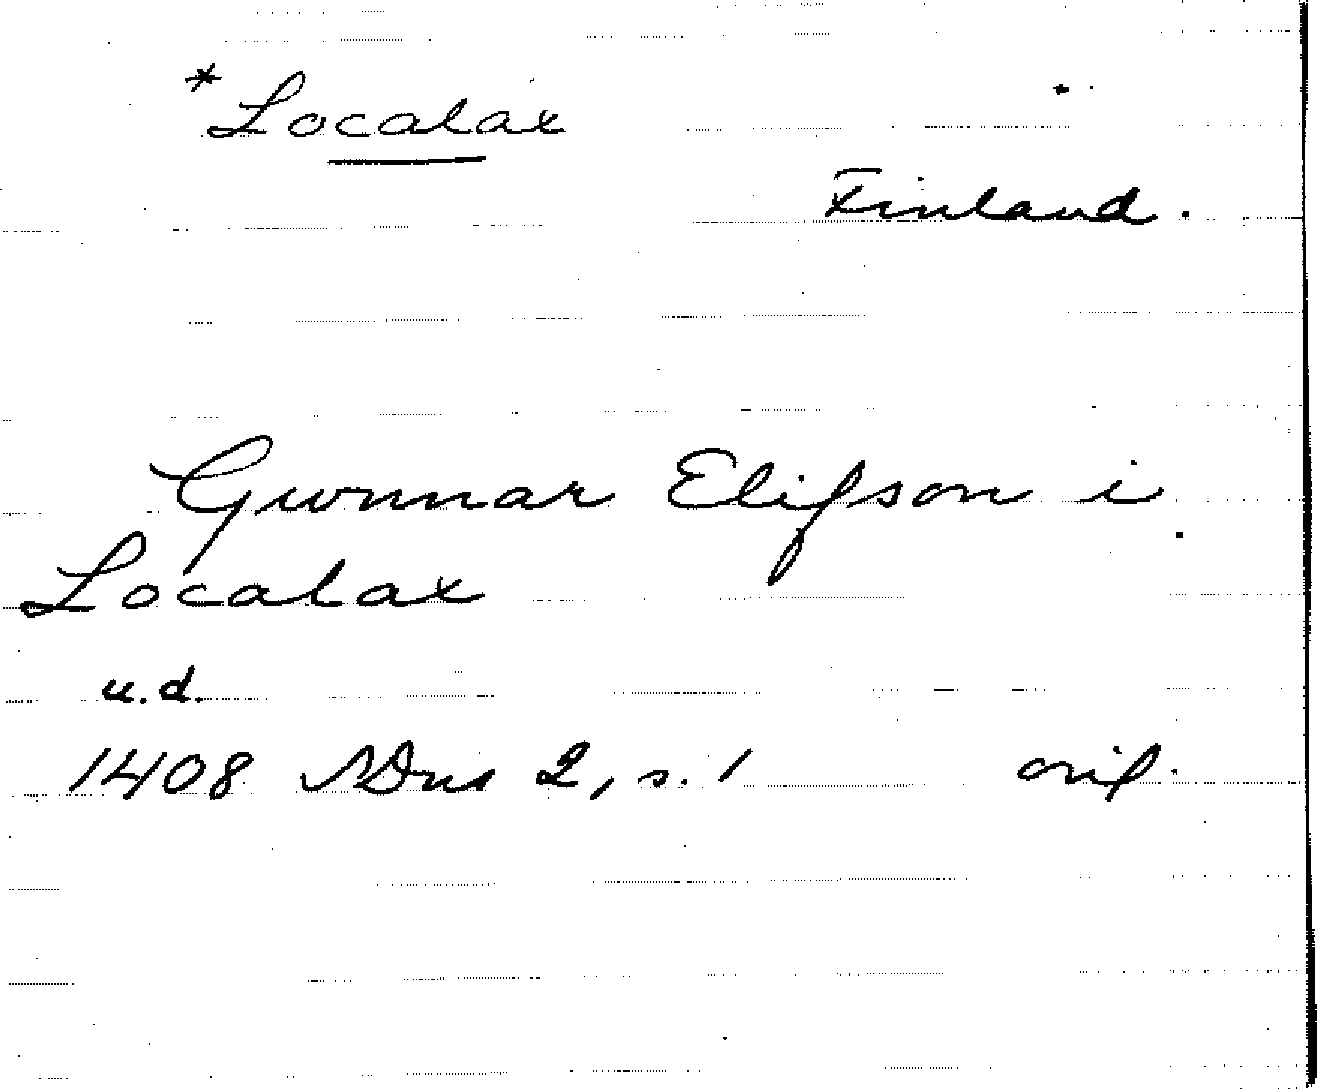 *Localax
Finland.
Gunnar Elifson i
Localax
u.d.
1408 SDns 2, s. 1 orig.